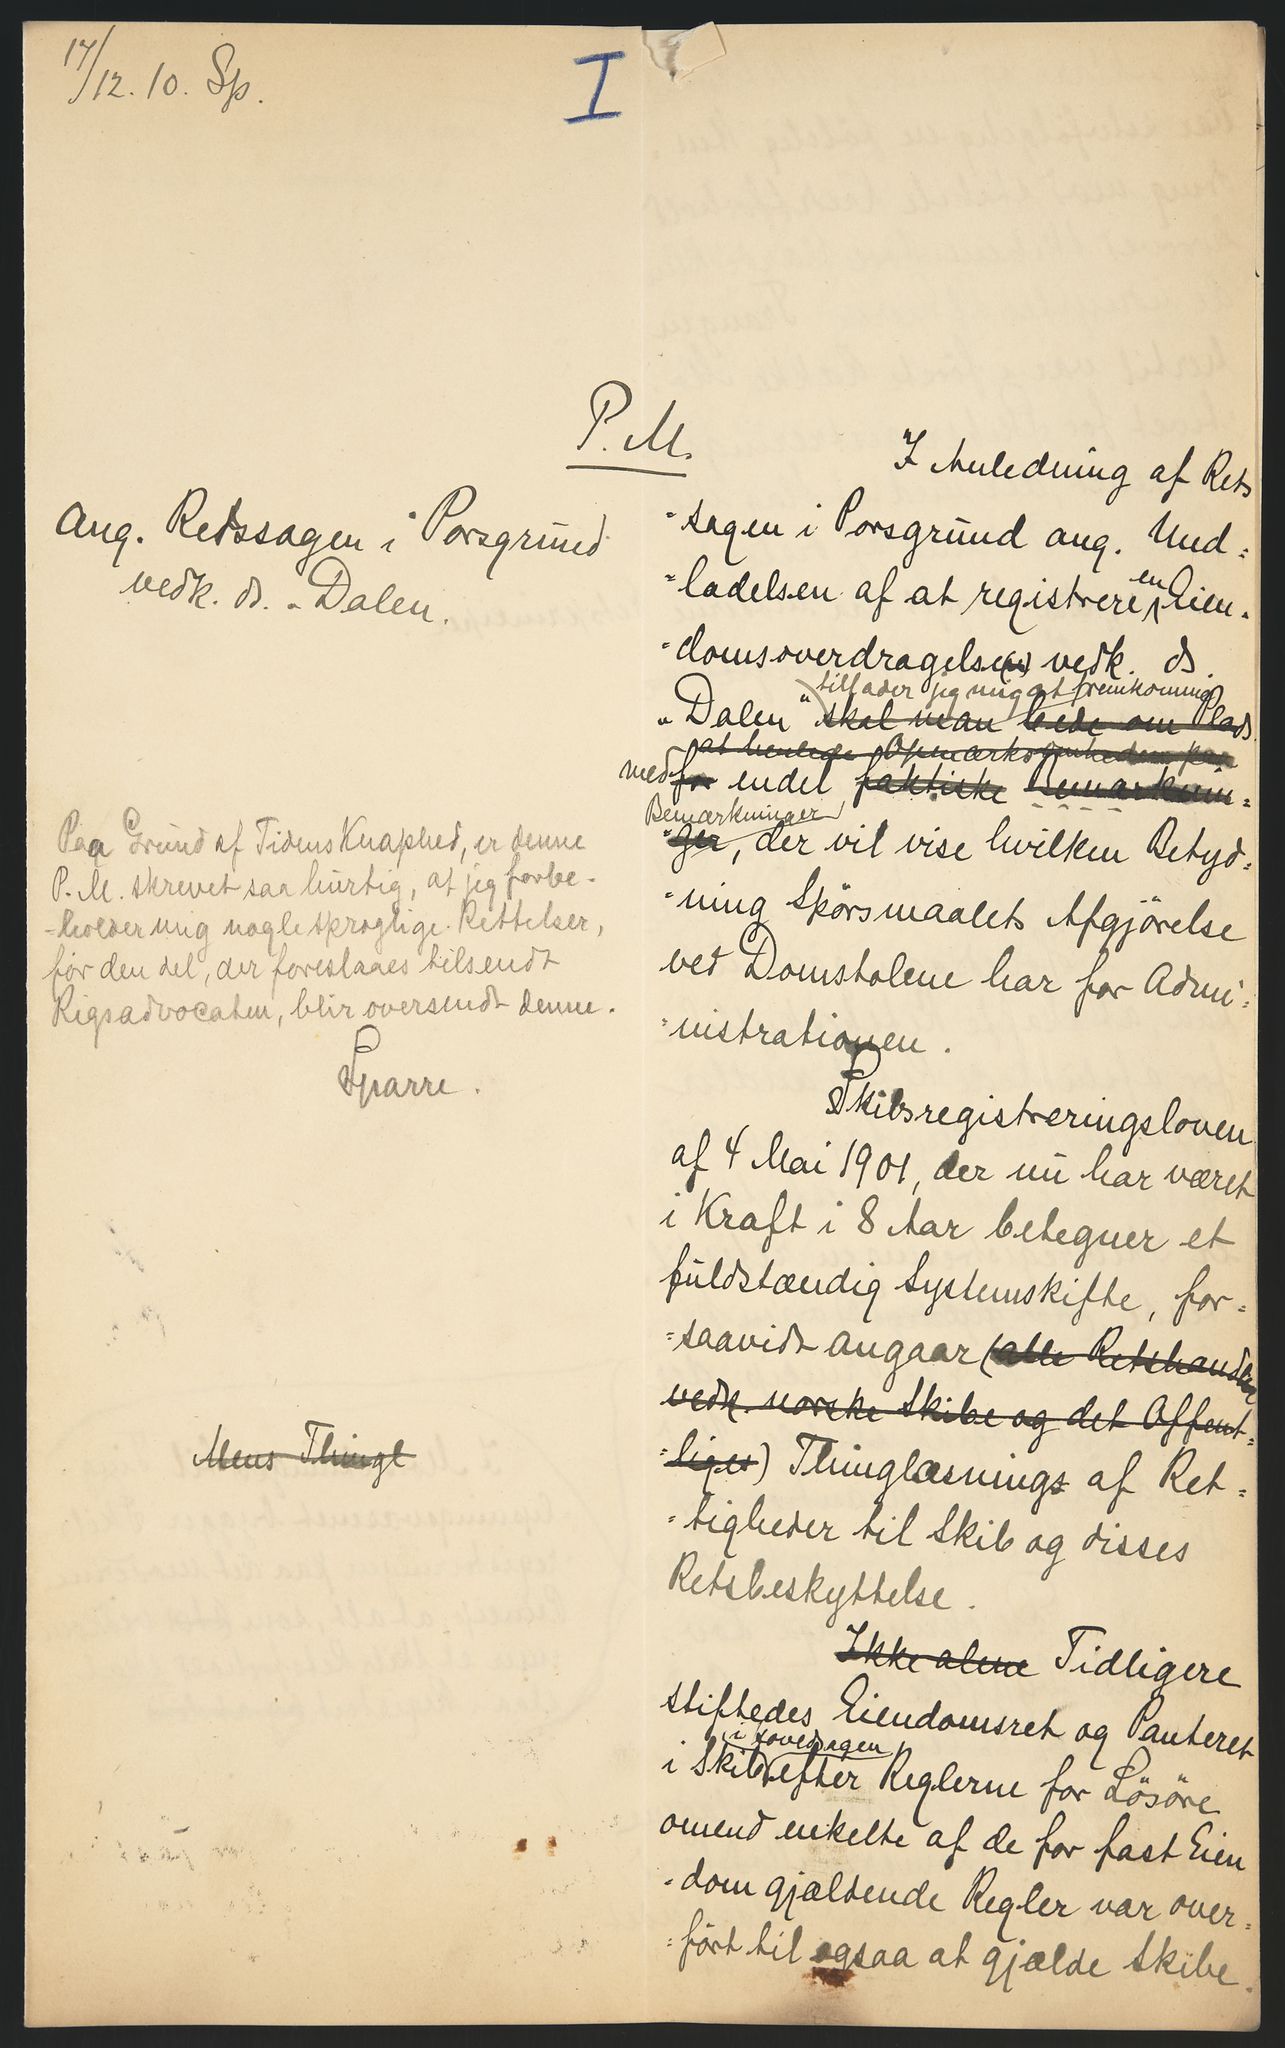 17/12. 10. Sp.
I
P. M.
Ang. Retssagen i Porsgrund
vedk. ds. "Dalen.
Paa Grund af Tidens Knaphed, er denne
P. M. skrevet saa hurtig, at jeg forbe-
-holder mig nogle sproglige Rettelser,
før den del, der foreslaaes tilsendt
Rigsadvocaten, blir oversendt denne.
Sparre.
Mens Thingl
I Anledning af Rets
=sagen i Porsgrund ang. Und=
=ladelsen af at registrere en Eien=
=domsoverdragelse(n) vedk. ds.
tillader jeg mig at fremkomme
"Dalen" skal man bede om Plads
at henlede Opmærksomheden paa
med for endel faktiske Bemærknin=
Bemærkninger
=ger, der vil vise hvilken Betyd=
=ning Spörsmaalets Afgjörelse
ved Domstolene har for Admi=
=nistrationen.
Skibsregistreringsloven
af 4 Mai 1901, der nu har været
i Kraft i 8 Aar betegner et
fuldstændig Systemskifte, for=
=saavidt angaar (alle Retshandler
vedk. norske Skibe og det Offent=
=liges) Thinglæsnings af Ret=
=tigheder til Skib og disses
Retsbeskyttelse.
Ikke alene Tidligere
stiftedes Eiendomsret og Panteret
i hovedsagen
i Skib efter Reglerne for Lösöre
omend enkelte af de for fast Eien
=dom gjældende Regler var over=
=fört til ogsaa at gjælde Skibe.